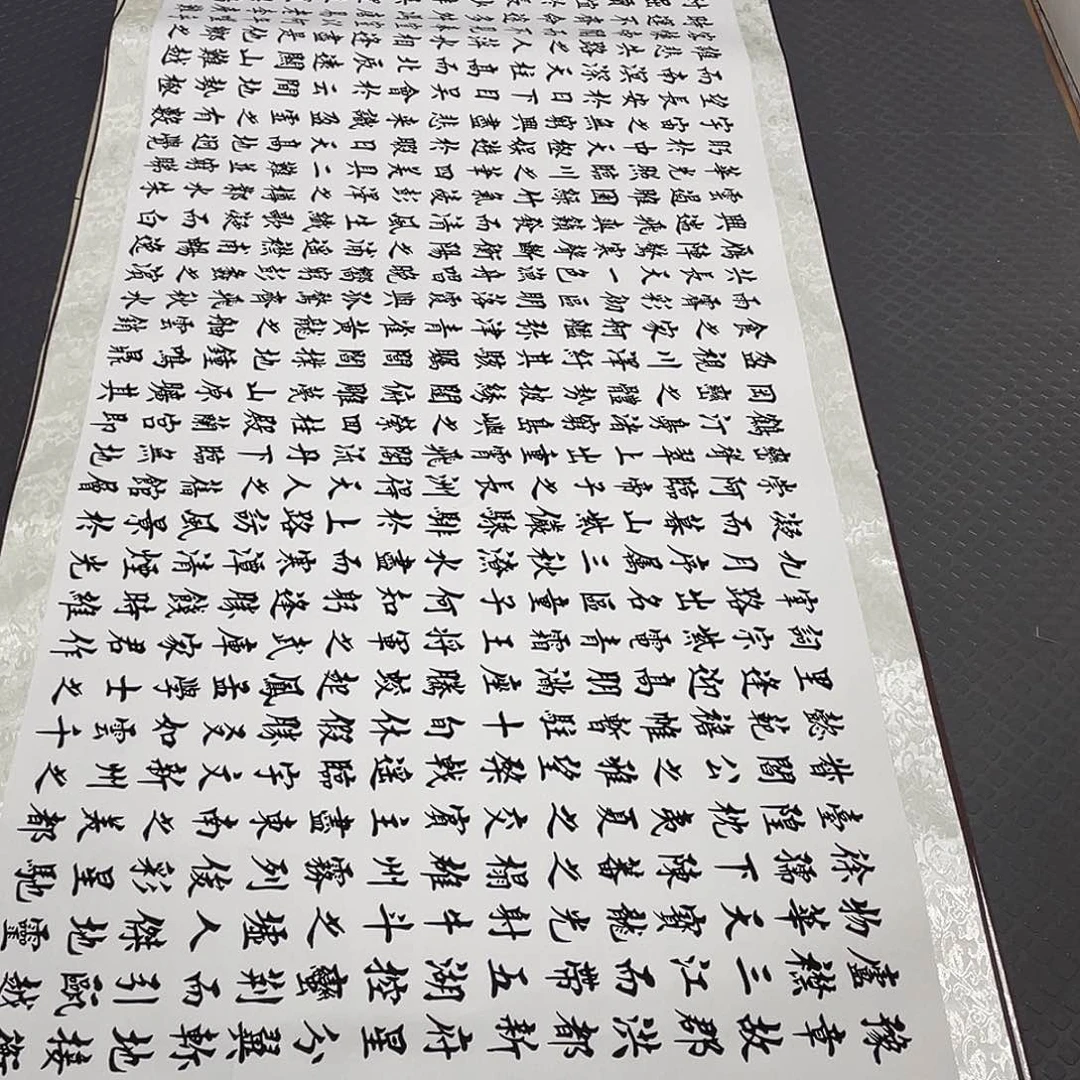 豫章故郡洪都新府星分翼軫地接衡
廬襟三江而帶五湖控蠻荊而引甌越
物華天寶龍光射牛斗之墟人傑地靈
徐孺下陳蕃之榻雄州霧列俊彩星馳
臺隍枕夷夏之交賓主盡東南之美都
督閻公之雅望棨戟遙臨宇文新州之
懿範襜帷暫駐十旬休假勝友如雲千
里逢迎高朋滿座騰蛟起鳳孟學士之
詞宗紫電青霜王將軍之武庫家君作
宰路出名區童子何知躬逢勝餞時維
九月序屬三秋潦水盡而寒潭清煙光
凝而暮山紫儼驂騑於上路訪風景於
崇阿臨帝子之長洲得天人之舊館層
巒聳翠上出重霄飛閣流丹下臨無地
鶴汀鳧渚窮島嶼之縈迴桂殿蘭宮即
岡巒之體勢披繡闥俯雕甍山原曠其
盈視川澤紆其駭矚閭閻撲地鐘鳴鼎
食之家舸艦彌津青雀黃龍之舳雲銷
雨霽彩徹區明落霞與孤鶩齊飛秋水
共長天一色漁舟唱晚響窮彭蠡之濱
雁陣驚寒聲斷衡陽之浦遙襟甫暢逸
興遄飛爽籟發而清風生纖歌凝而白
雲遏睢園綠竹氣凌彭澤之樽鄴水朱
華光照臨川之筆四美具二難並窮睇
眄於中天極娛遊於暇日天高地迥覺
宇宙之無窮興盡悲來識盈虛之有數
望長安於日下目吳會於雲間地勢極
而南溟深天柱高而北辰遠關山難越
誰悲失路之人萍水相逢盡是他鄉之